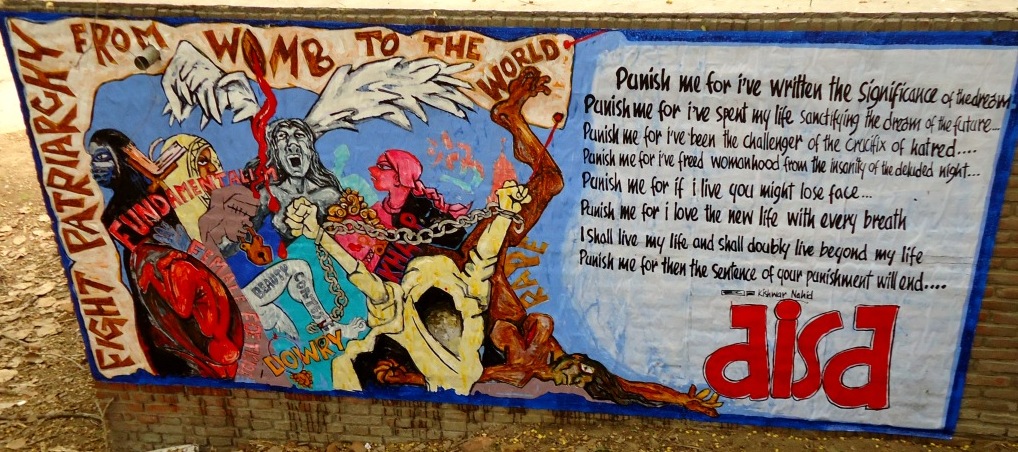 FIGHT PATRIARCHY FROM WOMB TO THE WORLD
FUNDAMENTALISM
BEAUTY
DOWRY
KHAP
RAPE
Punish me for i've written the significance of the dream
Punish me for i've spent my life sanctifying the dream of the future...
Punish me for i've been the challenger of the crucifix of hatred....
Punish me for i've freed womanhood from the insanity of the deluded night...
Punish me for if i live you might lose face...
Punish me for i love the new life with every breath
I shall live my life and shall doubly live beyond my life
Punish me for then the sentence of your punishment will end....
Kishwar Nahid
aisa